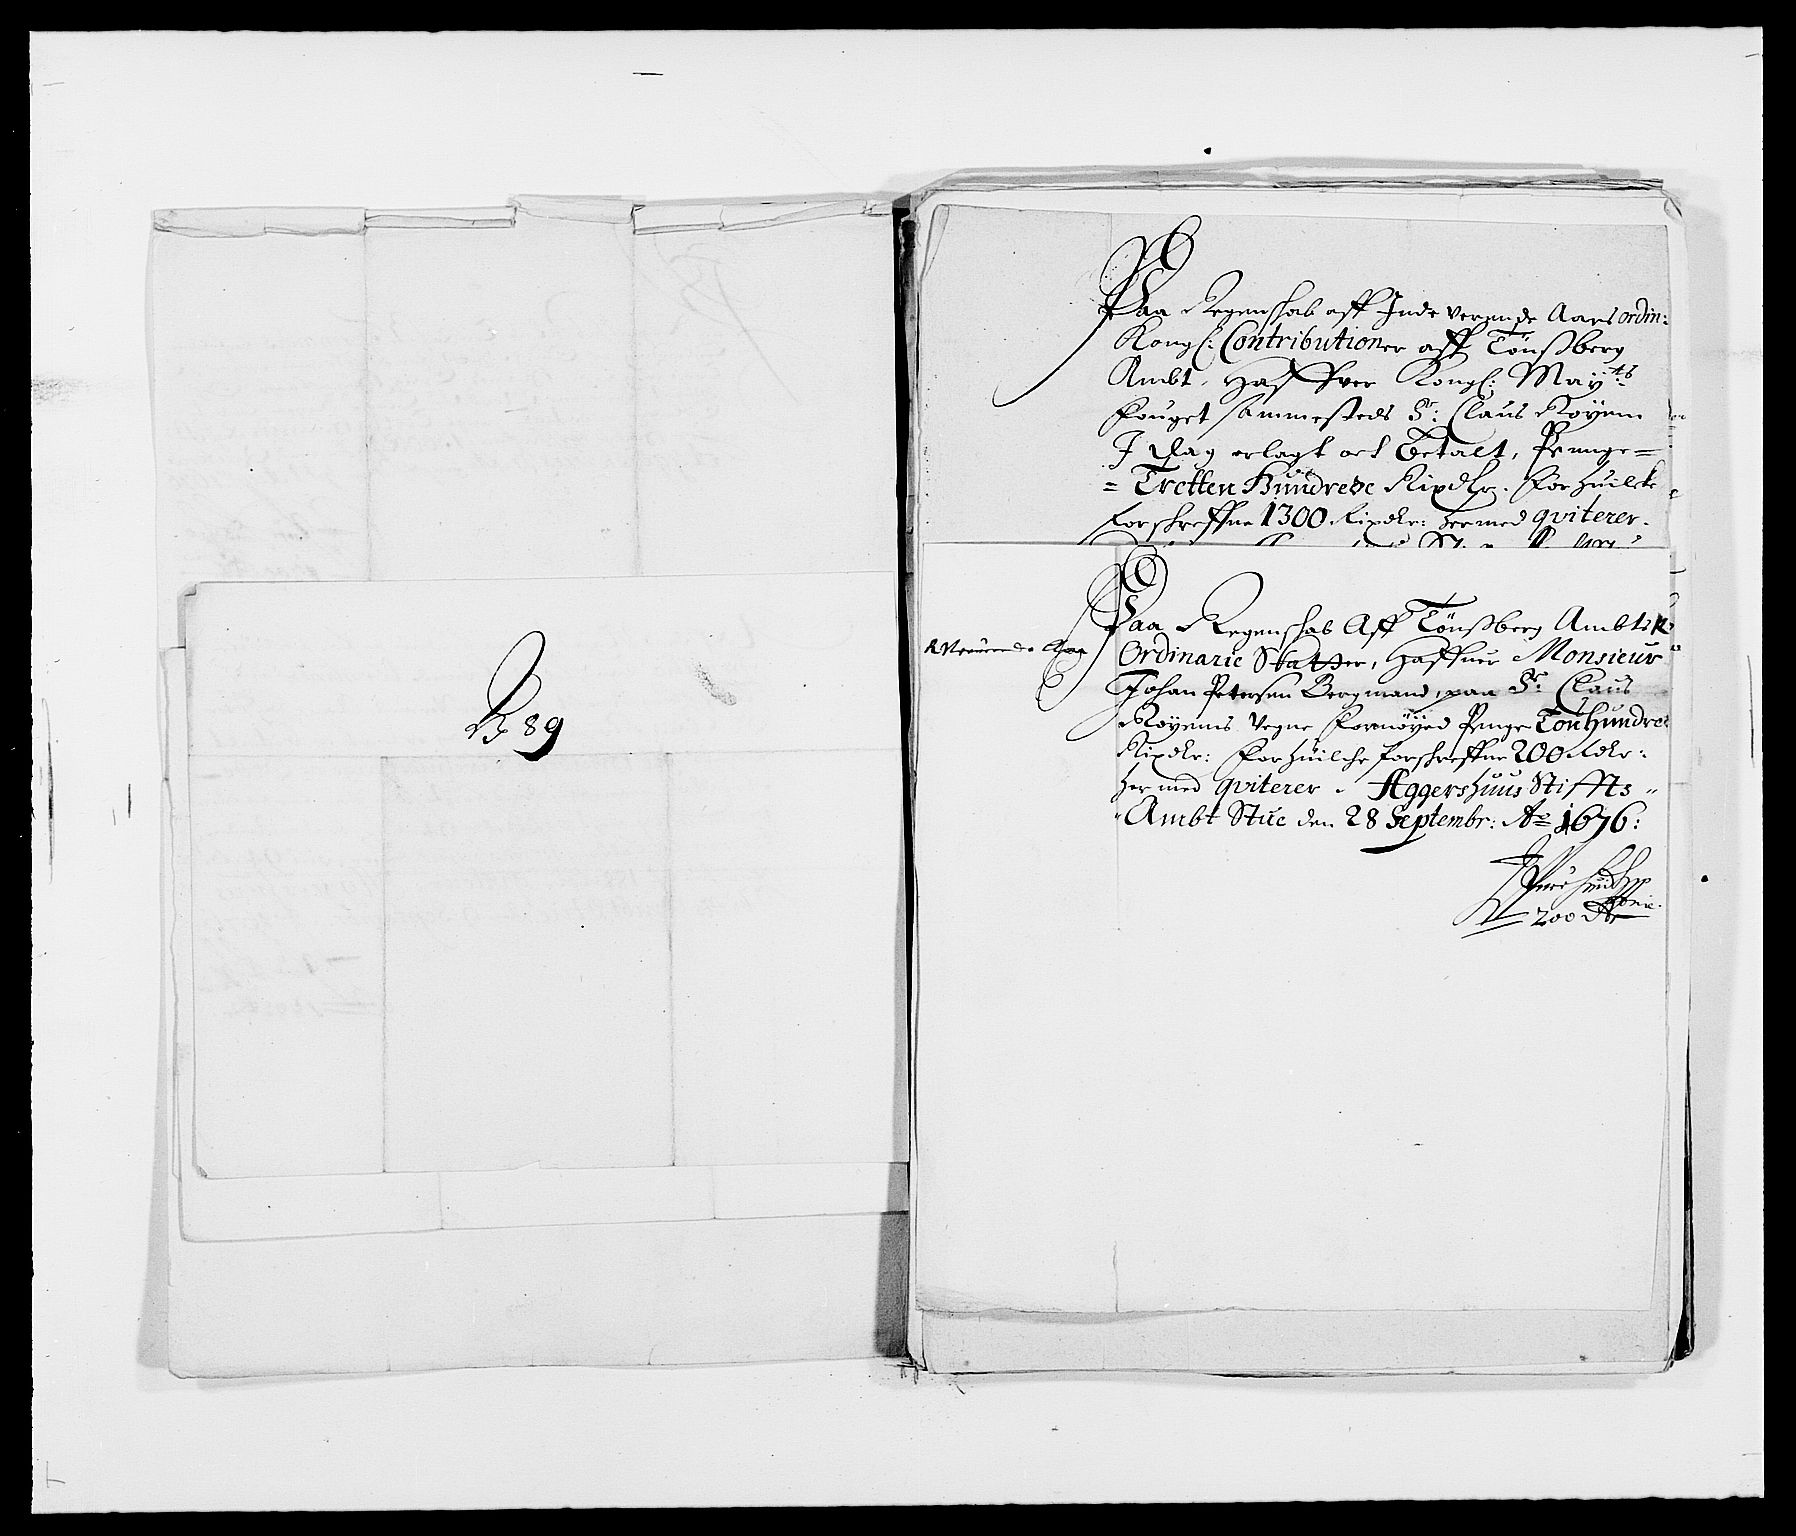 No 89
Paa Regenskab aff Inde verende Aars ordin:
Kongl: Contributioner aff Tönßberg
Ambt, Haffver Kongl: Mayts
Fouget sammesteds Sr: Claus Röyem
I Dag erlagt och Betalt, Penge=
=Tretten Hundrede Rixdlr. for huilcke
forschreffne 1300 Rixdlr: hermed qviterer.
Paa Regenskab Aff Tönßberg Ambts
Ordinarie Skatter, Haffuer Monsieur
Johan Petersen Bergmand, paa Sr: Claus
Röyems Vegne fornöyed Penge Touhundrede
Rixdlr: for huilche forschreffne 200 Rdlr:
her med qviterer Aggershuus Stiffts
Ambt Stue den 28 Septembr: Ao 1676:
200 dlr